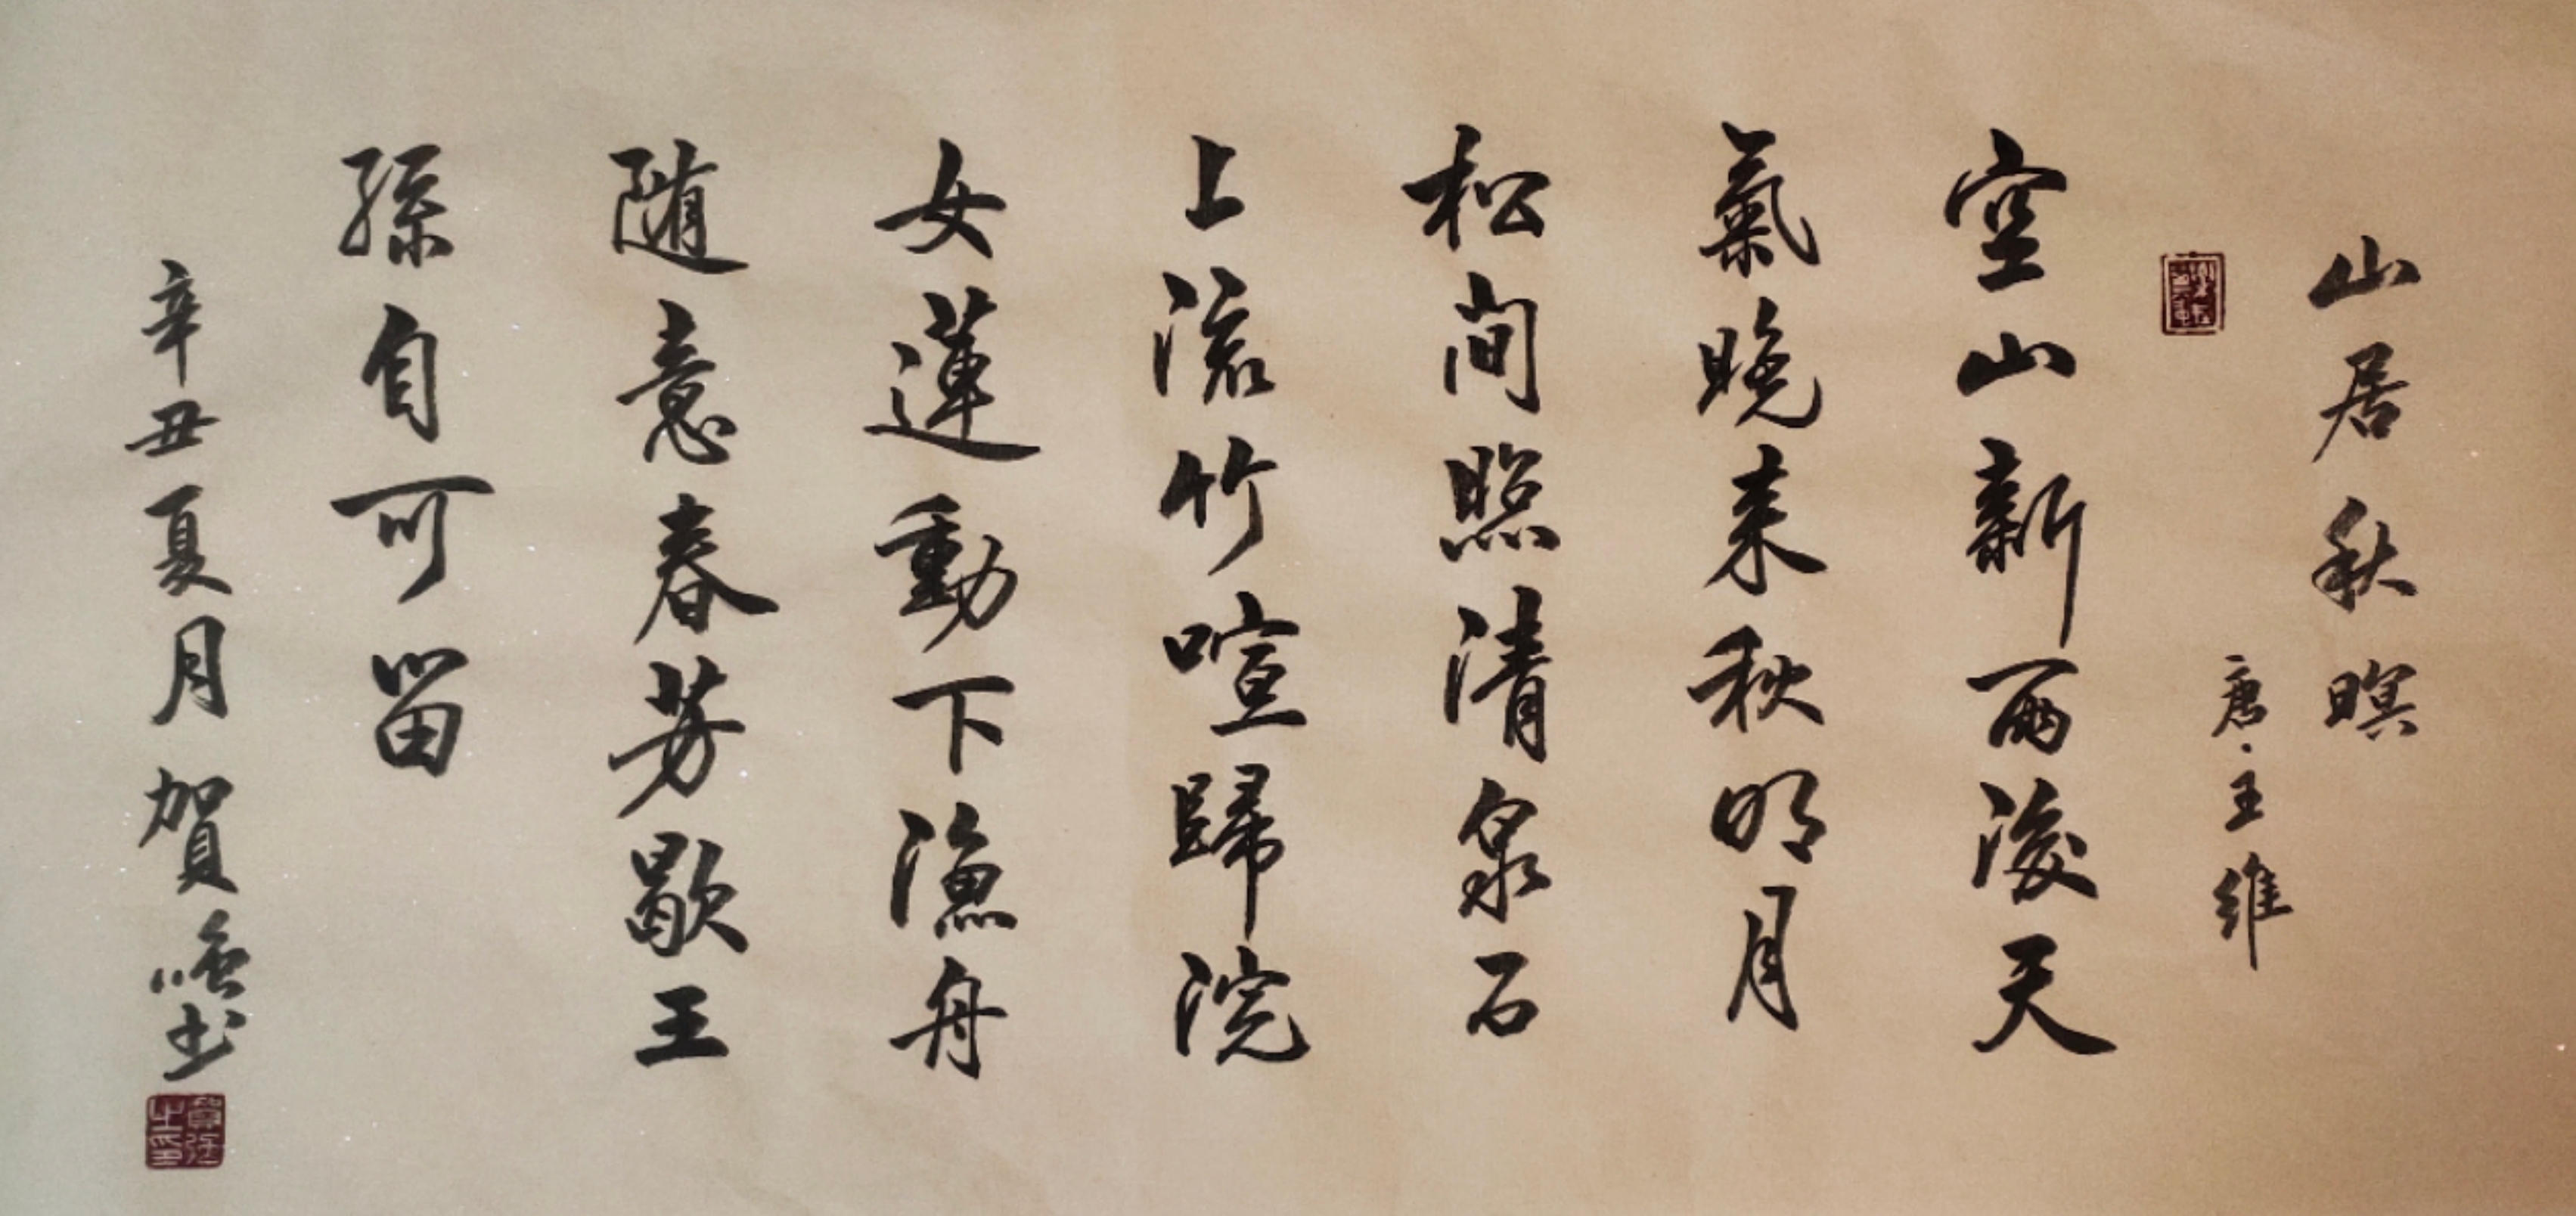 山居秋暝
唐·王維
空山新雨後天
氣晚来秋明月
松间照清泉石
上流竹喧歸浣
女蓮動下漁舟
随意春芳歇王
孫自可留
辛丑夏月賀书